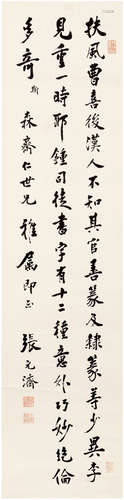 扶風曹喜後漢人不知其官善篆及隸篆等少異李
見重一時耶鍾司徒書字有十二種意外巧妙絕倫
多奇 斯
森齋仁世兄雅屬即正 張元濟